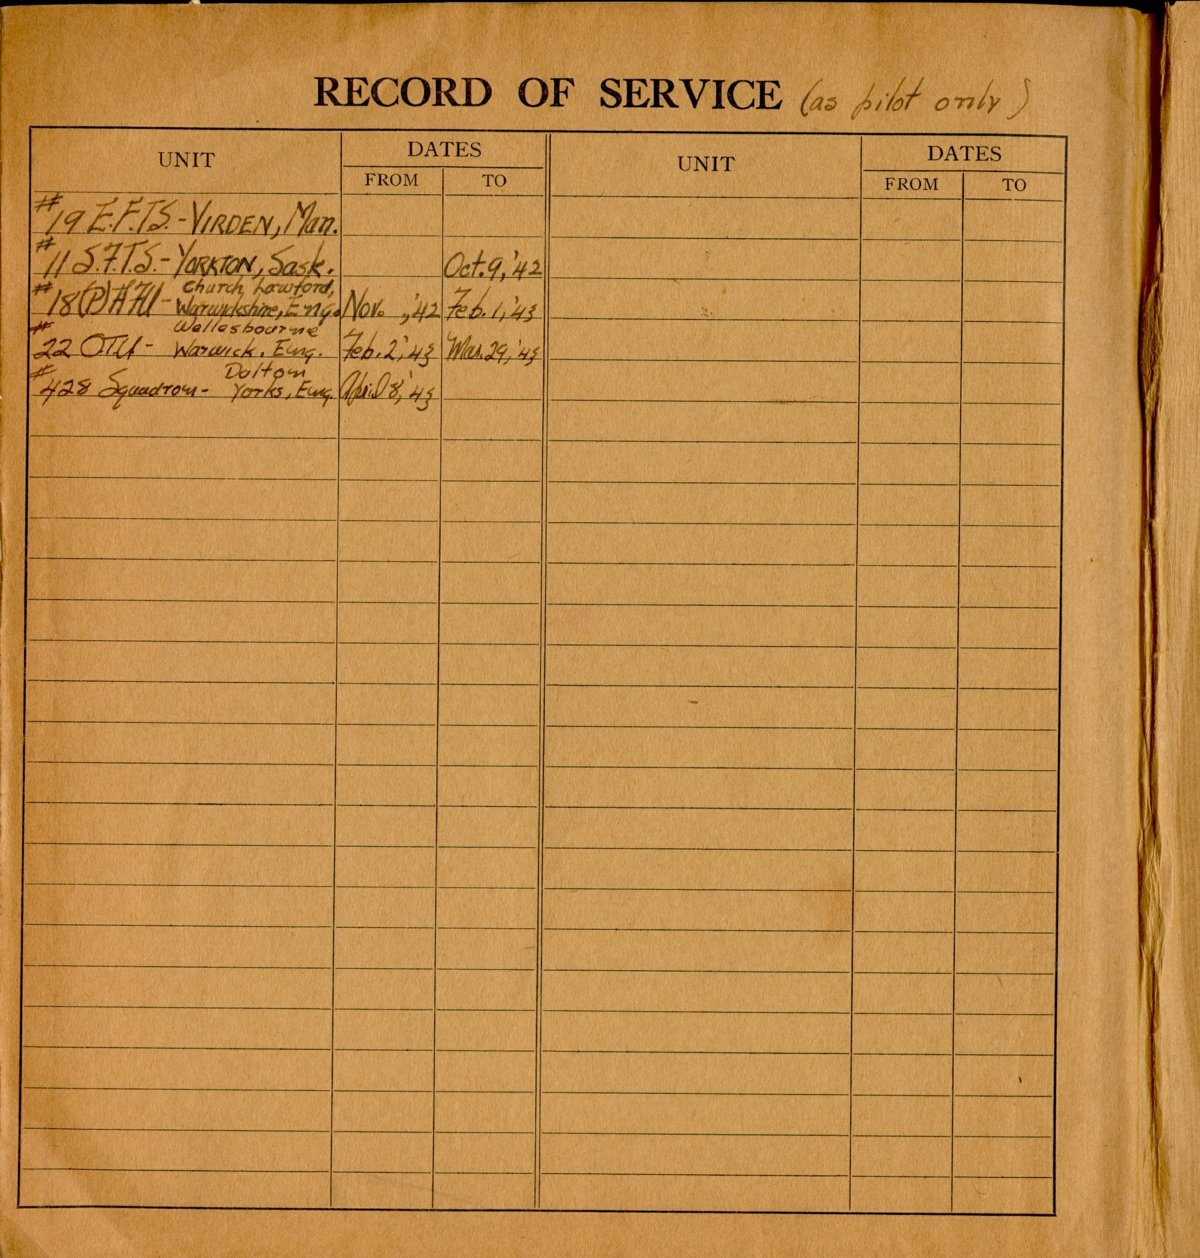 RECORD OF SERVICE (as pilot only)
UNIT DATES UNIT DATES
FROM TO FROM TO
#19 E.F.T.S. - VIRDEN, Man.
#11 S.F.T.S. - YORKTON, Sask. Oct. 9, '42
Church Lawford,
#18 (P) AFU - Warwickshire, Eng. Nov. , '42 Feb. 1, '43
Wellesbourne
#22 OTU - Warwick. Eng. Feb. 2, '43 Mar. 29, '43
Dalton
#428 Squadron - Yorks, Eng. April 8, '43